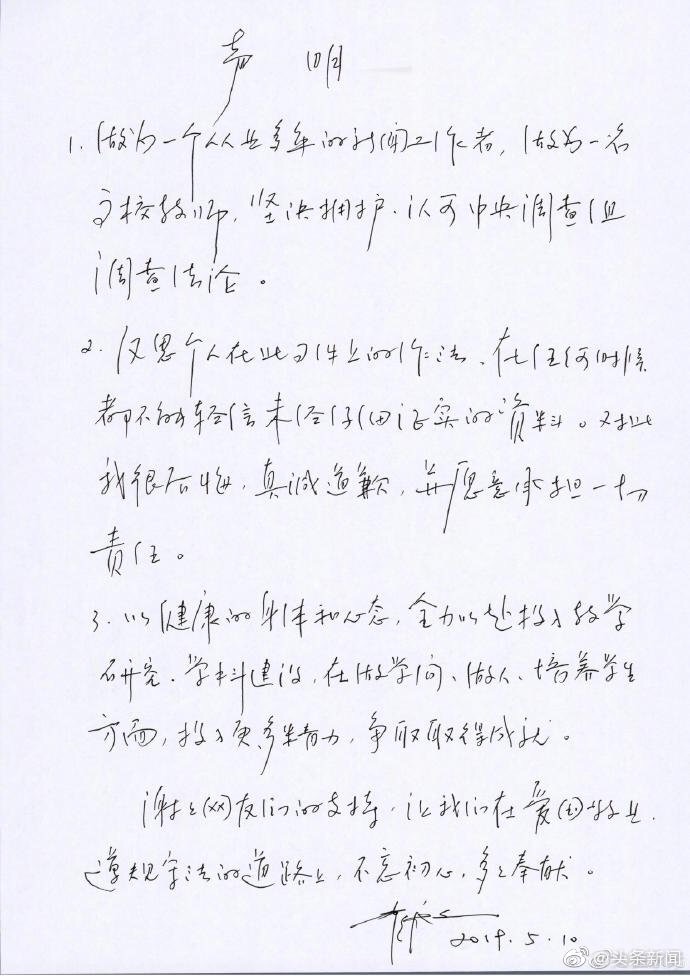 声 明
1. 做为一个从业多年的新闻工作者，做为一名
高校教师，坚决拥护、认可中央调查组
调查结论。
2. 反思个人在此事件上的作法、在任何时候
都不能轻信未经仔细证实的资料。对此
我很后悔，真诚道歉，并愿意承担一切
责任。
3. 以健康的身体和心态，全力以赴投入教学
研究、学科建设，在做学问、做人、培养学生
方面，投入更多精力，争取取得成就。
谢谢网友们的支持，让我们在爱国敬业、
遵规守法的道路上，不忘初心，多多奉献。
2019.5.10
@头条新闻